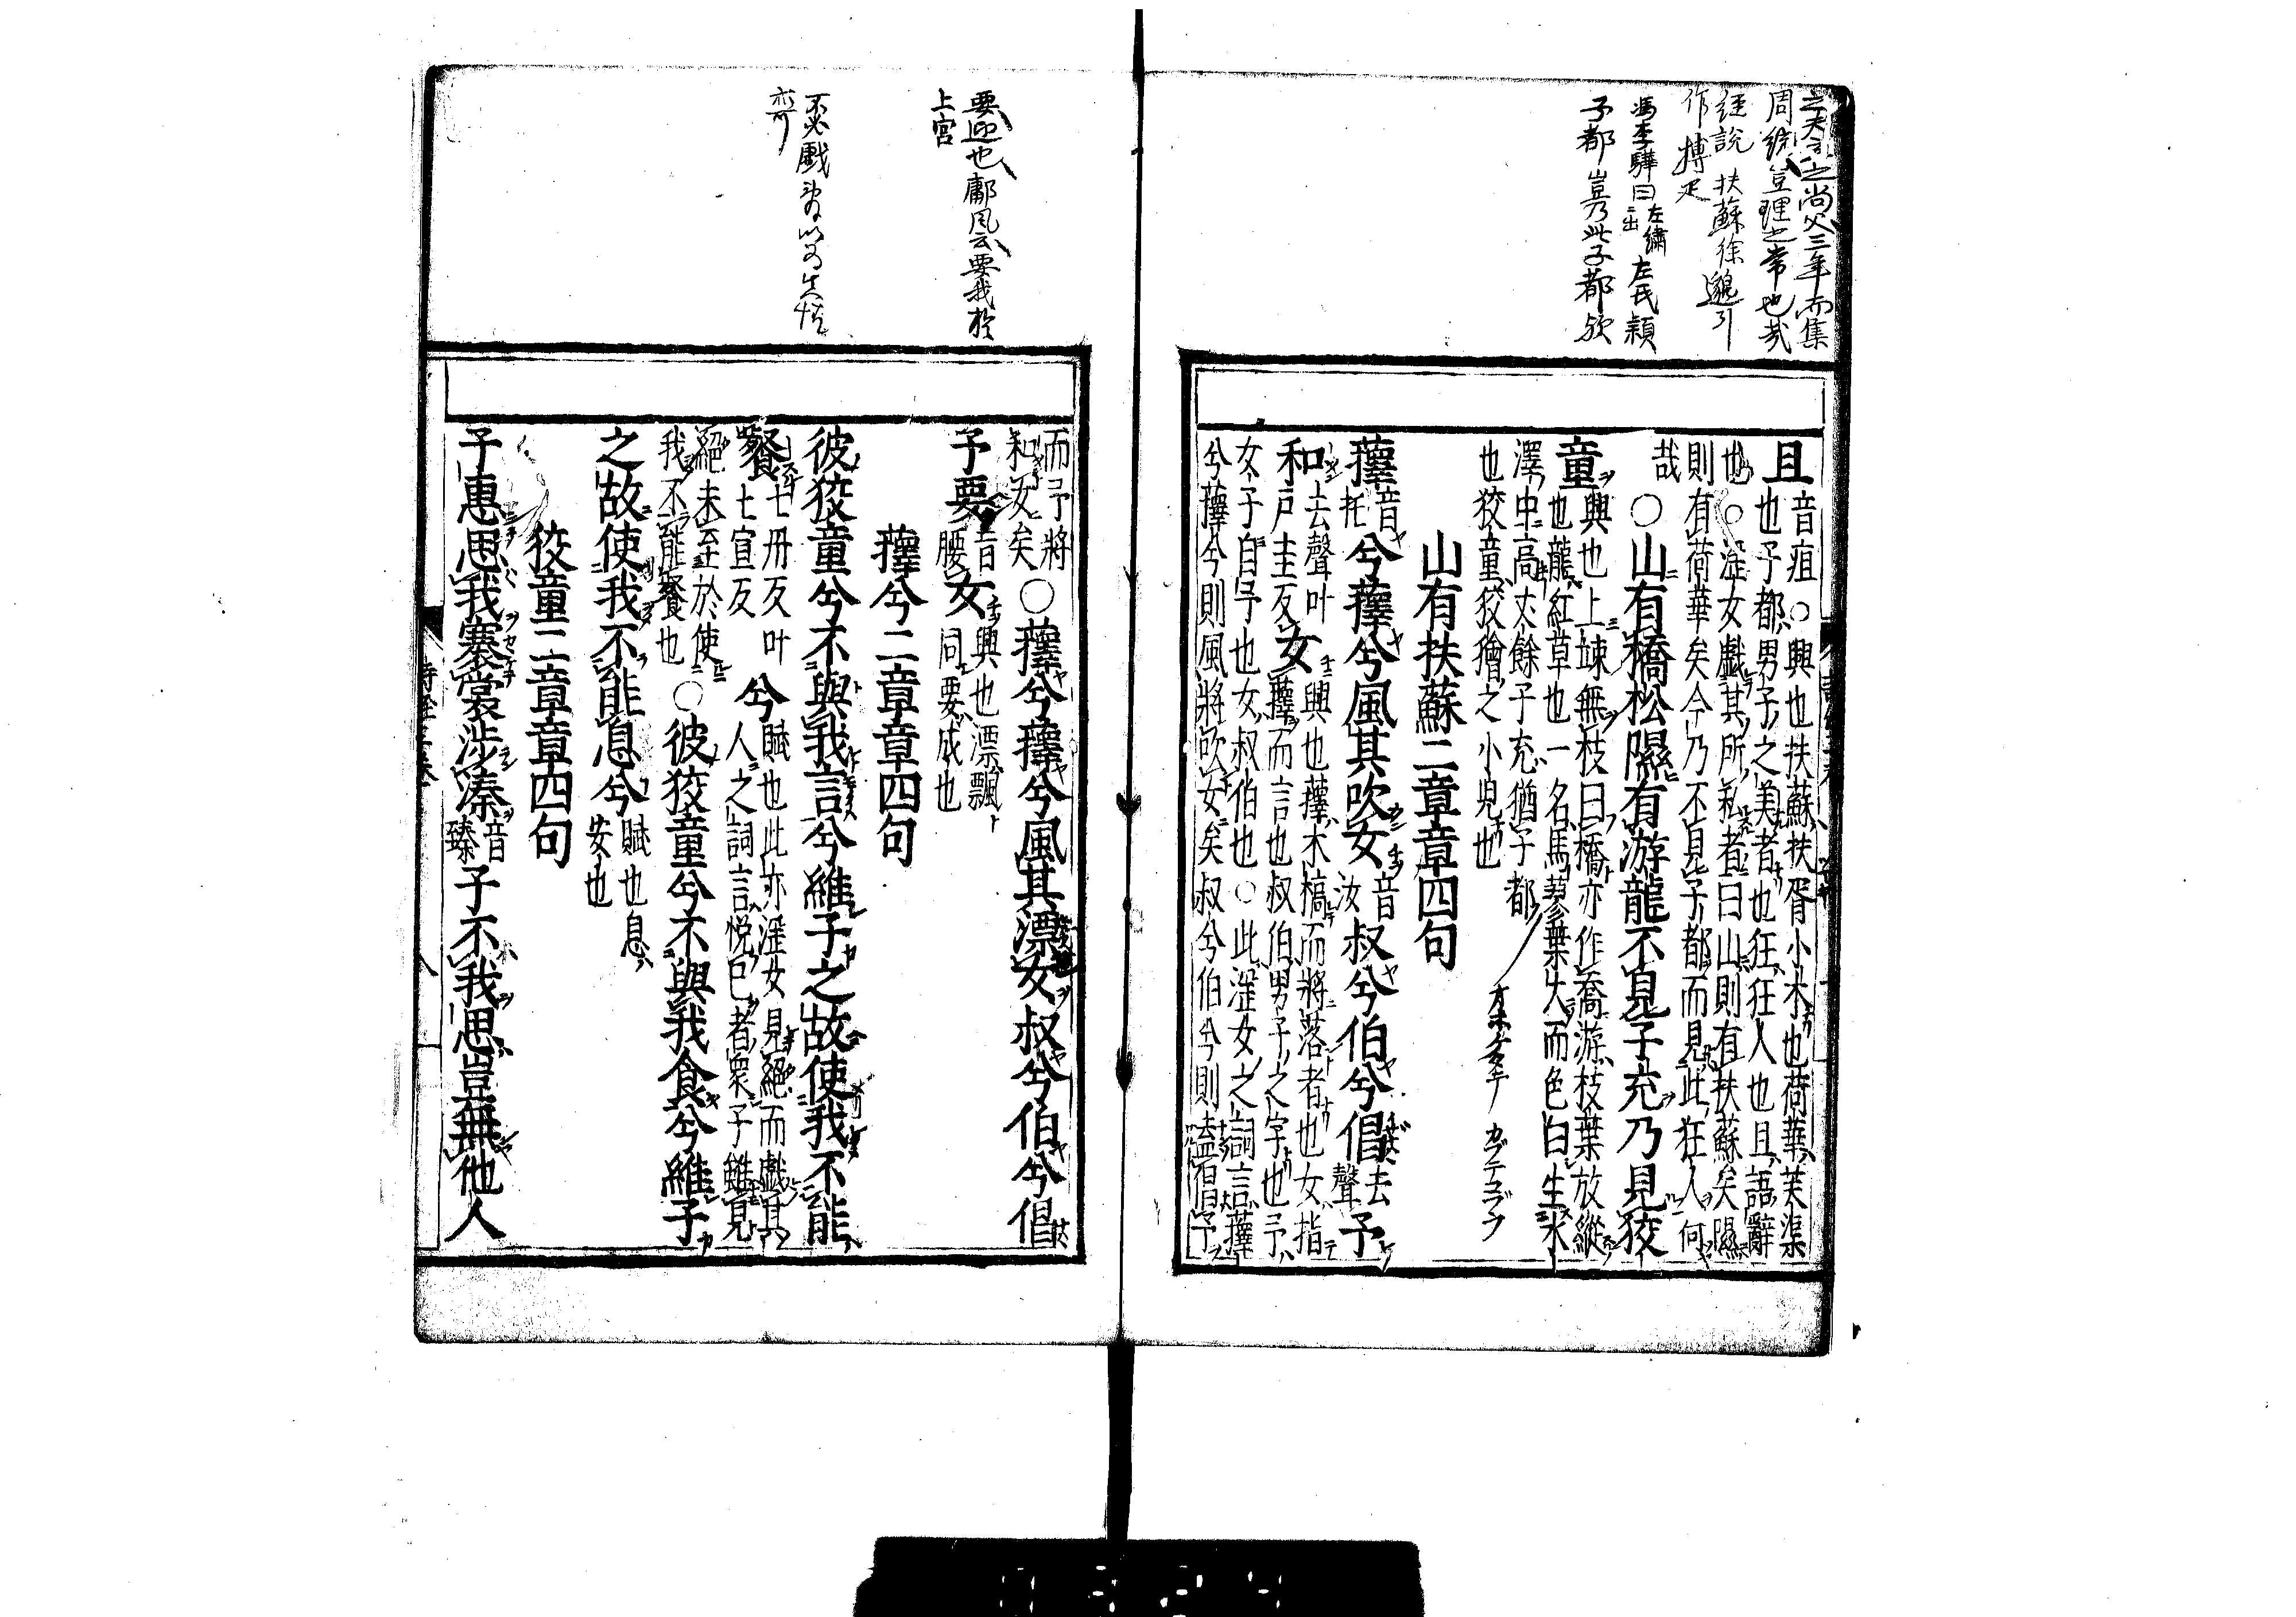 周綜豈理之常也哉
経説 扶蘇徐邈引
作 搏疋
馮李驊曰左繍 左氏頴
子都 豈乃此子都欤
且音疽○興也扶蘇扶胥小木也荷華芙渠
也子都男子之美者也狂狂人也且語辭
也○淫女戯其所私者曰山則有扶蘇矣隰
則有荷華矣今乃不見子都而見此狂人何
哉○山有橋松隰有游龍不見子充乃見狡
童興也上竦無枝曰橋亦作喬游枝葉放縱
也龍紅草也一名馬蓼葉大而色白生水
澤中高丈餘子充猶子都
也狡童狡獪之小兒也
山有扶蘇二章章四句
蘀音托兮蘀兮風其吹女音汝叔兮伯兮倡去聲予
和去聲叶戶圭反女興也蘀木槁而將落者也女指
蘀而言也叔伯男子之字也予
女子自予也女叔伯也○此淫女之詞言蘀
兮蘀兮則風將吹女矣叔兮伯兮則盍倡予
而予將
和女矣○蘀兮蘀兮風其漂女叔兮伯兮倡
予要音腰女興也漂飄
同要成也
蘀兮二章章四句
彼狡童兮不與我言兮維子之故使我不能
餐七丹反叶七宣反兮賦也此亦淫女見絕而戯其
人之詞言悅已者衆子雖見
絕未至於使
我不能餐也○彼狡童兮不與我食兮維子
之故使我不能息兮賦也息
安也
狡童二章章四句
子惠思我褰裳涉溱音臻子不我思豈無他人
要迎也鄘風云要我於
上宮